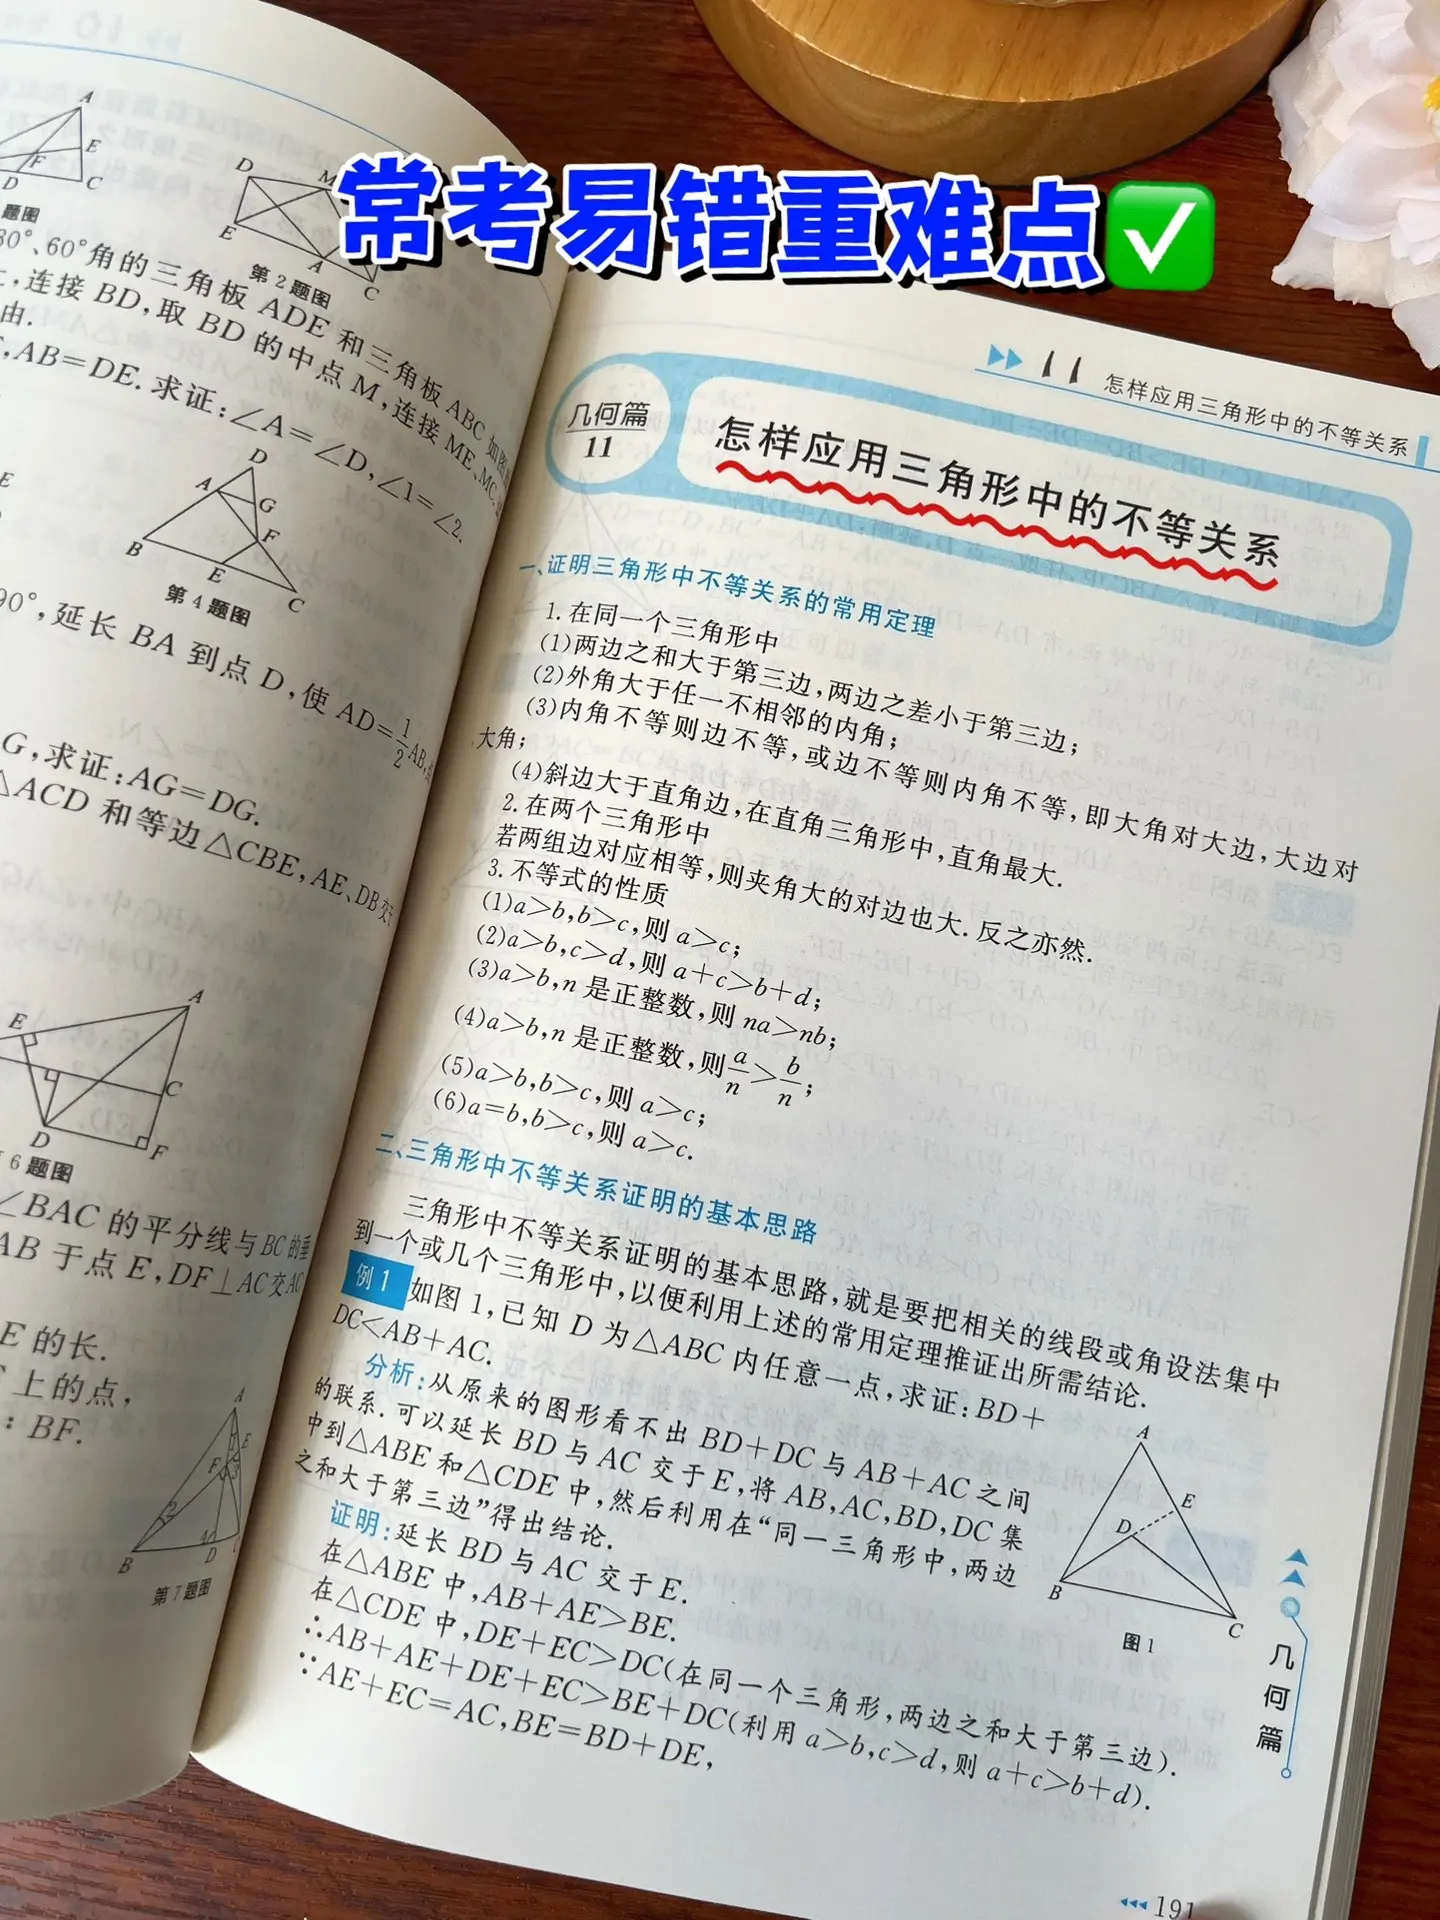 常考易错重难点✅
A
E
F
D
C
题图
D
M
E
A
C
第2题图
30°、60°角的三角板 ADE 和三角板 ABC 如图
,连接 BD,取 BD 的中点 M,连接 ME、MC.
由.
,AB=DE.求证:∠A=∠D,∠1=∠2.
E
D
A
G
F
B
E
C
第4题图
90°,延长 BA 到点 D,使 AD=1/2AB,
G,求证:AG=DG.
△ACD 和等边△CBE,AE、DB交于
A
E
C
D
F
6题图
∠BAC 的平分线与 BC 的垂
AB 于点 E,DF⊥AC交AC
E 的长.
上的点,
:BF.
A
E
F
1
3
2
4
B
D
第7题图
11 怎样应用三角形中的不等关系
几何篇
11
怎样应用三角形中的不等关系
一、证明三角形中不等关系的常用定理
1.在同一个三角形中
(1)两边之和大于第三边,两边之差小于第三边;
(2)外角大于任一不相邻的内角;
(3)内角不等则边不等,或边不等则内角不等,即大角对大边,大边对
大角;
(4)斜边大于直角边,在直角三角形中,直角最大.
2.在两个三角形中
若两组边对应相等,则夹角大的对边也大.反之亦然.
3.不等式的性质
(1)a>b,b>c,则 a>c;
(2)a>b,c>d,则 a+c>b+d;
(3)a>b,n 是正整数,则 na>nb;
(4)a>b,n 是正整数,则a/n>b/n;
(5)a>b,b>c,则 a>c;
(6)a=b,b>c,则 a>c.
二、三角形中不等关系证明的基本思路
三角形中不等关系证明的基本思路,就是要把相关的线段或角设法集中
到一个或几个三角形中,以便利用上述的常用定理推证出所需结论.
例1 如图 1,已知 D 为△ABC 内任意一点,求证:BD+
DC<AB+AC.
分析:从原来的图形看不出 BD+DC 与 AB+AC 之间
的联系.可以延长 BD 与 AC 交于 E,将 AB,AC,BD,DC 集
中到△ABE 和△CDE 中,然后利用在“同一三角形中,两边
之和大于第三边”得出结论.
证明:延长 BD 与 AC 交于 E.
在△ABE 中,AB+AE>BE.
在△CDE 中,DE+EC>DC(在同一个三角形,两边之和大于第三边).
∴AB+AE+DE+EC>BE+DC(利用 a>b,c>d,则 a+c>b+d).
∵AE+EC=AC,BE=BD+DE,
A
E
D
B
C
图1
几何篇
191